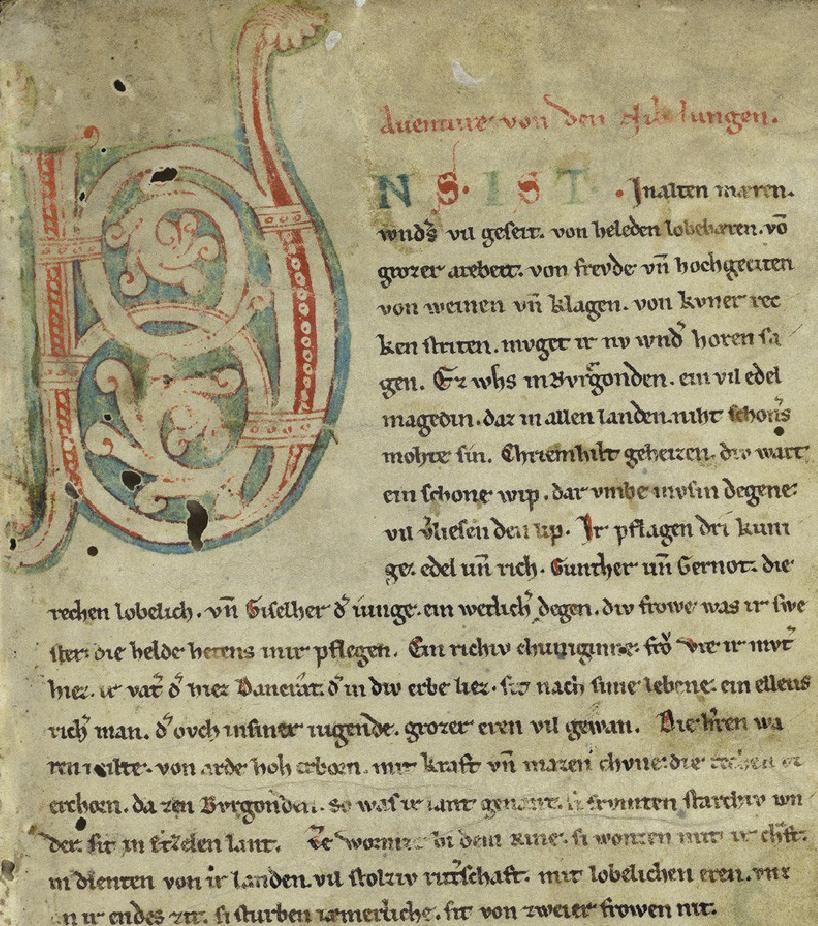 Auenture von den Nibelungen.
VNS. IST. Jn alten mæren.
wnds vil geseit. von heleden lobebæren. vō
grozer arebeit. von frevde vn̄ hochgeciten
von weinen vn̄ klagen. von kvner rec
ken striten. mvget ir nv wnd̾ horen sa
gen. Ez whs in Bvrgonden. ein vil edel
magedin. daz in allen landen. niht schoners
mohte sin. Chriemhilt geheizen. div wart
ein schone wip. dar vmbe mvsin degene
vil v̾liesen den lip. Ir pflagen dri kuni
ge. edel vn̄ rich. Gunther vn̄ Gernot. die
rechen lobelich. vn̄ Giselher d̾ iunge. ein wetlich̾ degen. div frowe was ir swe
ster. die helde hetens in ir pflegen. Ein richiv chuniginne. frō Vte ir mvt̾
hiez. ir vat̾ d̾ hiez Dancrat. d̾ in div erbe liez. sit nach sime lebene. ein ellens
rich̾ man. d̾ ovch in siner iugende. grozer eren vil gewan. Die h̾ren wa
ren milte. von arde hoh erborn. mit kraft vn̄ mazen chvne. die rechen
erchorn. da zen Bvrgonden. so was ir lant genant. si frvmten starchiv wn
der. sit in Etzelen lant. Ze Wormze bi dem Rine. si wonten mit ir chʼft.
in dienten von ir landen. vil stolziv rit̾schaft. mit lobelichen eren. vnz
an ir endes zit. si sturben iæmerliche. sit von zweier frowen nit.